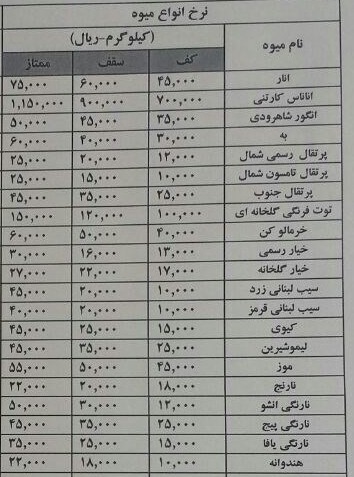 نرخ انواع میوه
نام میوه (کیلوگرم-ریال)
کف سقف ممتاز
انار ۴۵,۰۰۰ ۶۰,۰۰۰ ۷۵,۰۰۰
اناناس کارتنی ۷۰۰,۰۰۰ ۹۰۰,۰۰۰ ۱,۱۵۰,۰۰۰
انگور شاهرودی ۳۵,۰۰۰ ۴۵,۰۰۰ ۵۰,۰۰۰
به ۳۰,۰۰۰ ۴۰,۰۰۰ ۶۰,۰۰۰
پرتقال رسمی شمال ۱۲,۰۰۰ ۲۰,۰۰۰ ۲۵,۰۰۰
پرتقال تامسون شمال ۱۰,۰۰۰ ۱۵,۰۰۰ ۲۵,۰۰۰
پرتقال جنوب ۲۵,۰۰۰ ۳۵,۰۰۰ ۴۵,۰۰۰
توت فرنگی گلخانه ای ۱۰۰,۰۰۰ ۱۲۰,۰۰۰ ۱۵۰,۰۰۰
خرمالو کن ۴۰,۰۰۰ ۵۰,۰۰۰ ۶۰,۰۰۰
خیار رسمی ۱۳,۰۰۰ ۱۶,۰۰۰ ۳۰,۰۰۰
خیار گلخانه ۱۷,۰۰۰ ۲۲,۰۰۰ ۲۷,۰۰۰
سیب لبنانی زرد ۱۰,۰۰۰ ۲۰,۰۰۰ ۴۵,۰۰۰
سیب لبنانی قرمز ۱۰,۰۰۰ ۲۰,۰۰۰ ۴۰,۰۰۰
کیوی ۱۵,۰۰۰ ۲۵,۰۰۰ ۴۵,۰۰۰
لیموشیرین ۲۵,۰۰۰ ۳۵,۰۰۰ ۴۵,۰۰۰
موز ۴۵,۰۰۰ ۵۰,۰۰۰ ۵۵,۰۰۰
نارنج ۱۸,۰۰۰ ۲۰,۰۰۰ ۲۲,۰۰۰
نارنگی انشو ۱۲,۰۰۰ ۳۰,۰۰۰ ۵۰,۰۰۰
نارنگی پیج ۲۵,۰۰۰ ۳۵,۰۰۰ ۴۵,۰۰۰
نارنگی یافا ۱۵,۰۰۰ ۲۵,۰۰۰ ۳۵,۰۰۰
هندوانه ۱۰,۰۰۰ ۱۸,۰۰۰ ۲۲,۰۰۰